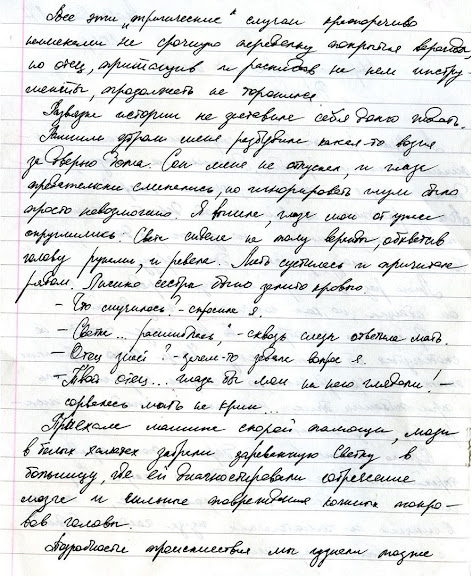 Все эти „трагические" случаи красноречиво
намекали на срочную переделку покрытия веранды,
но отец, притащив и раскидав на нем инстру-
менты, продолжать не торопился.
Развязка истории не заставила себя долго ждать.
Ранним утром меня разбудила какая-то возня
за дверью дома. Сон меня не отпускал, и глаза
предательски слипались, но игнорировать шум было
просто невозможно. Я вышла, глаза мои от ужаса
округлились. Света сидела на полу веранды, обхватив
голову руками, и ревела. Мать суетилась и причитала
рядом. Лицо сестры было залито кровью.
– Что случилось? – спросила я.
– Света... расшиблась, – сквозь слезы ответила мать.
– Отец знает? – зачем-то задала вопрос я.
– Твой отец... глаза бы мои на него глядели! –
сорвалась мать на крик...
Приехала машина скорой помощи, люди
в белых халатах забрали зареванную Светку в
больницу, где ей диагностировали сотрясение
мозга и сильные повреждения кожных покро-
вов головы.
Подробности происшествия мы узнали позже